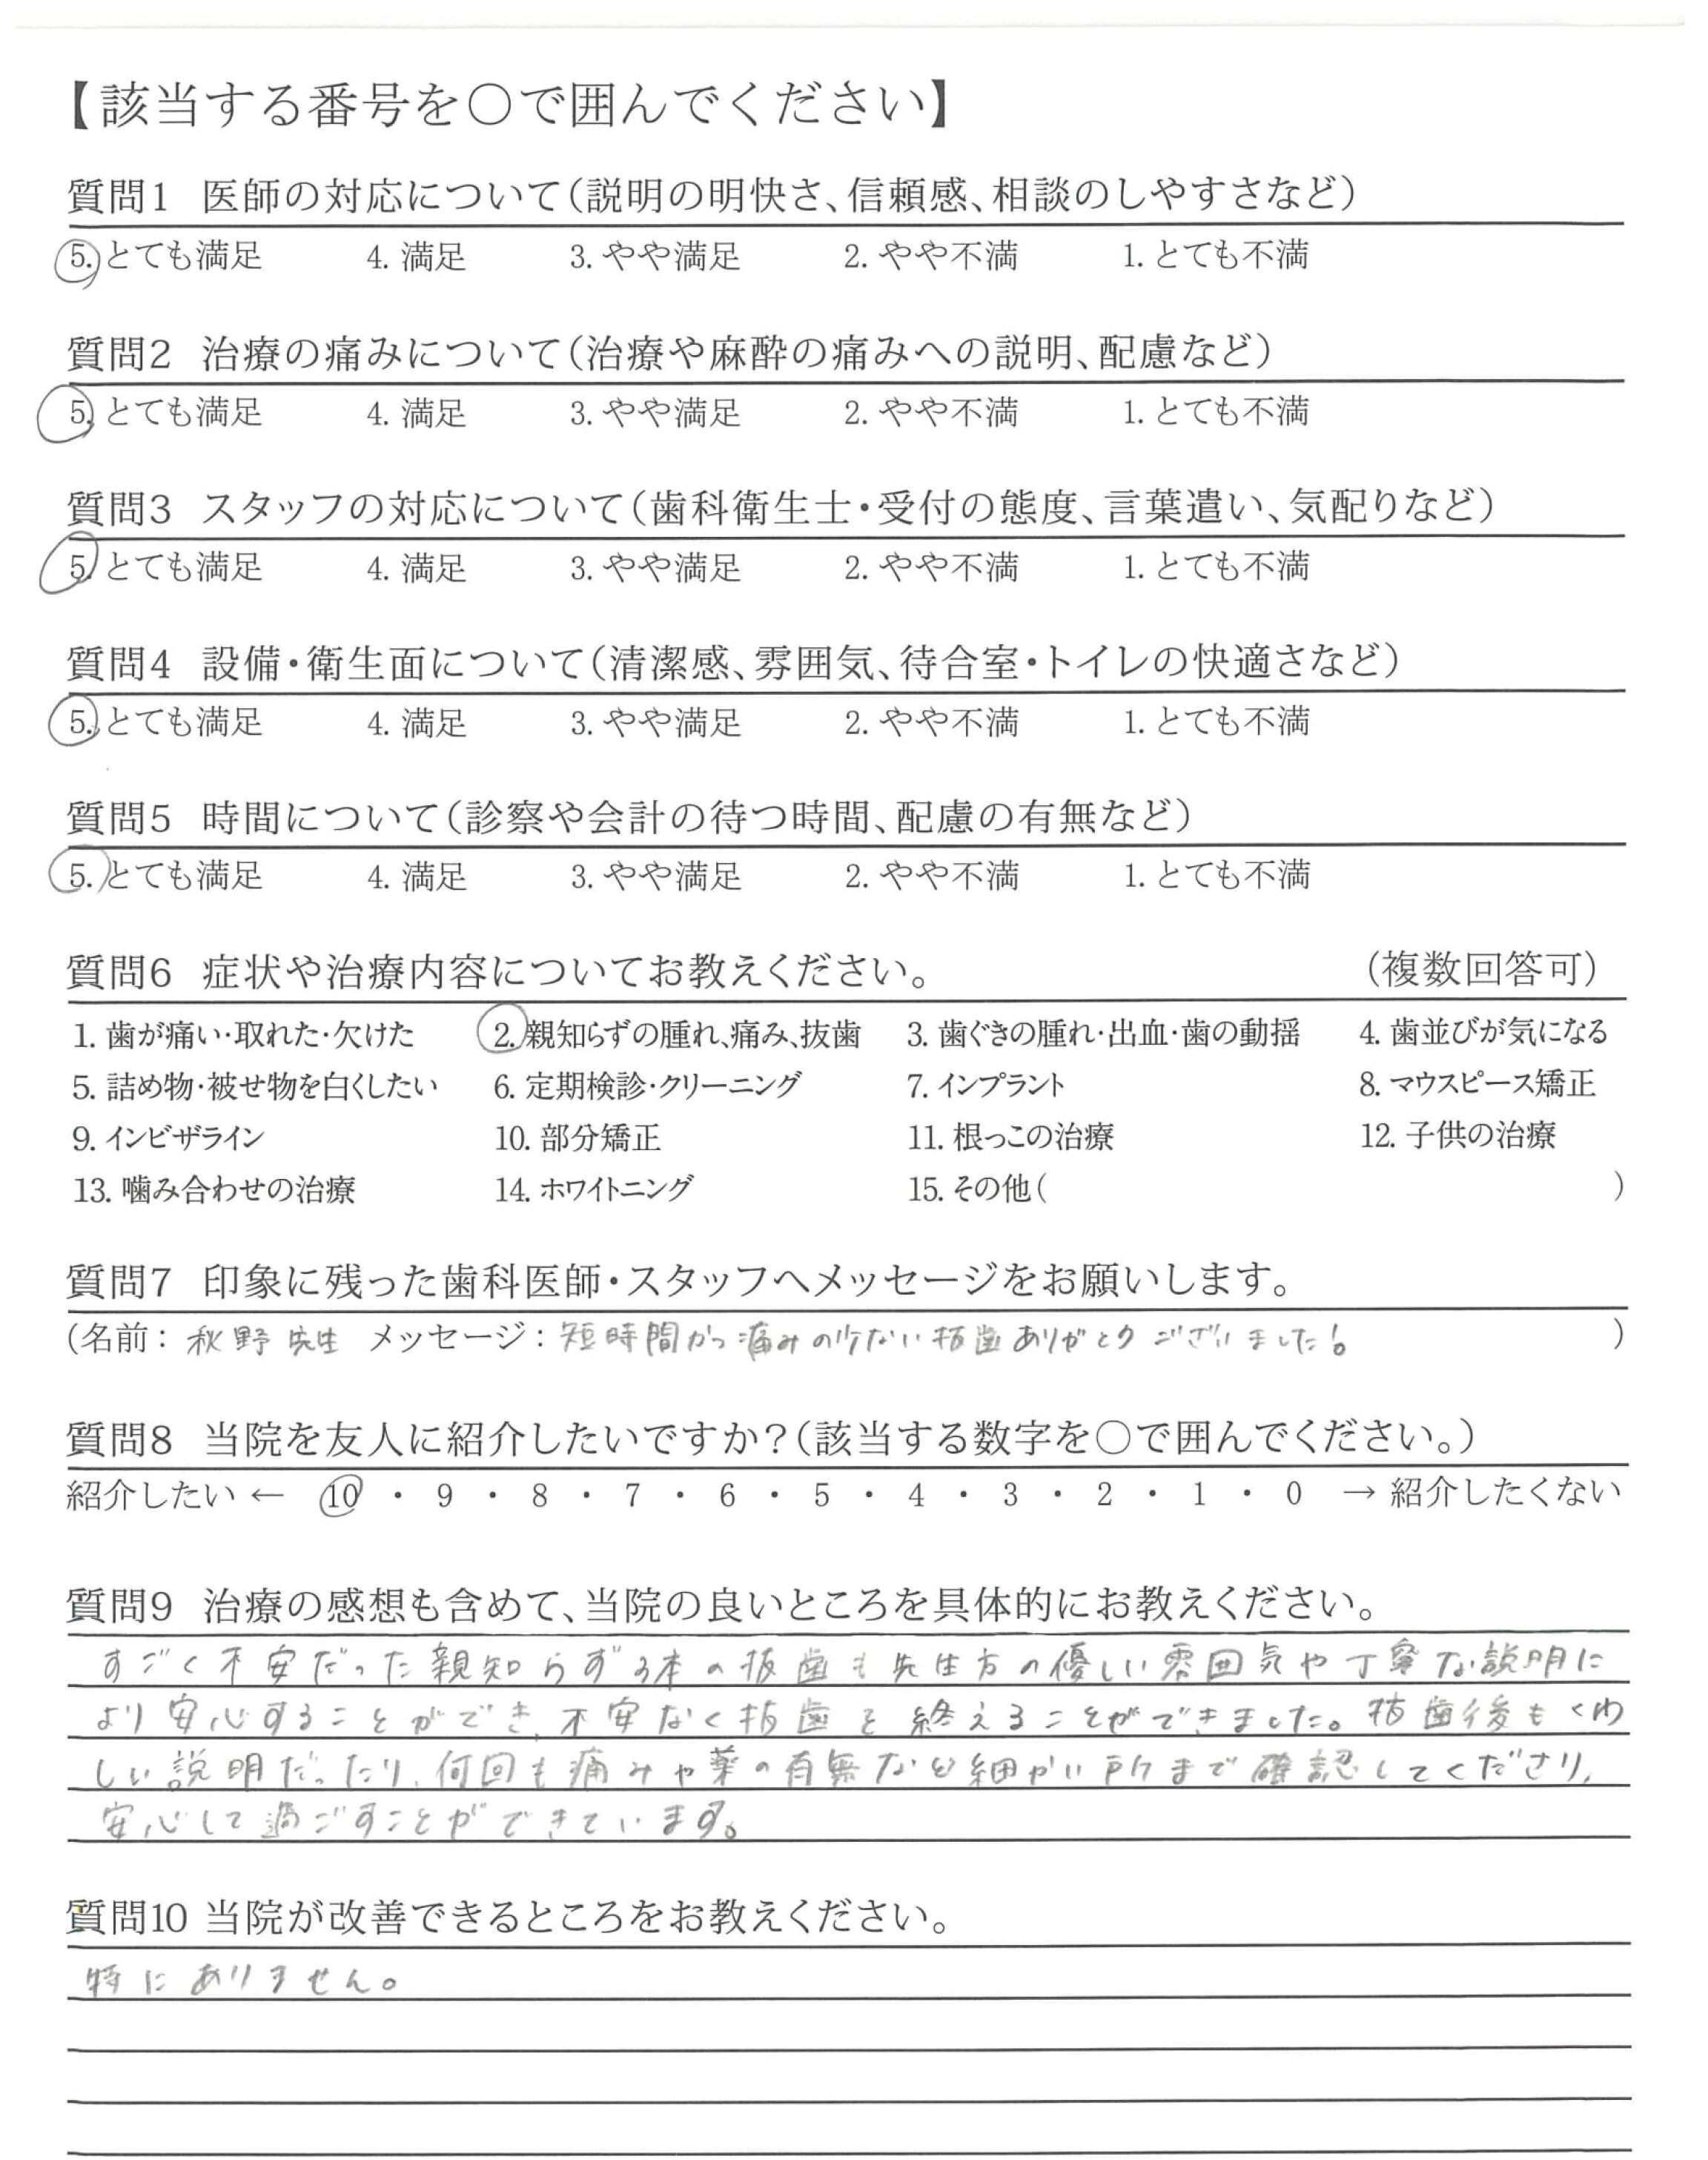 【該当する番号を〇で囲んでください】
質問1 医師の対応について(説明の明快さ、信頼感、相談のしやすさなど)
5. とても満足 4. 満足 3. やや満足 2. やや不満 1. とても不満
質問2 治療の痛みについて(治療や麻酔の痛みへの説明、配慮など)
5. とても満足 4. 満足 3. やや満足 2. やや不満 1. とても不満
質問3 スタッフの対応について(歯科衛生士・受付の態度、言葉遣い、気配りなど)
5. とても満足 4. 満足 3. やや満足 2. やや不満 1. とても不満
質問4 設備・衛生面について(清潔感、雰囲気、待合室・トイレの快適さなど)
5. とても満足 4. 満足 3. やや満足 2. やや不満 1. とても不満
質問5 時間について(診察や会計の待つ時間、配慮の有無など)
5. とても満足 4. 満足 3. やや満足 2. やや不満 1. とても不満
質問6 症状や治療内容についてお教えください。 (複数回答可)
1. 歯が痛い・取れた・欠けた 2. 親知らずの腫れ、痛み、抜歯 3. 歯ぐきの腫れ・出血・歯の動揺 4. 歯並びが気になる
5. 詰め物・被せ物を白くしたい 6. 定期検診・クリーニング 7. インプラント 8. マウスピース矯正
9. インビザライン 10. 部分矯正 11. 根っこの治療 12. 子供の治療
13. 噛み合わせの治療 14. ホワイトニング 15. その他( )
質問7 印象に残った歯科医師・スタッフへメッセージをお願いします。
(名前: 秋野 先生 メッセージ: 短時間かつ痛みの少ない抜歯ありがとうございました! )
質問8 当院を友人に紹介したいですか?(該当する数字を〇で囲んでください。)
紹介したい ← 10 ・ 9 ・ 8 ・ 7 ・ 6 ・ 5 ・ 4 ・ 3 ・ 2 ・ 1 ・ 0 → 紹介したくない
質問9 治療の感想も含めて、当院の良いところを具体的にお教えください。
すごく不安だった親知らず3本の抜歯も先生方の優しい雰囲気や丁寧な説明に
より安心することができ、不安なく抜歯を終えることができました。抜歯後もくわ
しい説明だったり、何回も痛みや薬の有無など細かい所まで確認してくださり、
安心して過ごすことができています。
質問10 当院が改善できるところをお教えください。
特にありません。